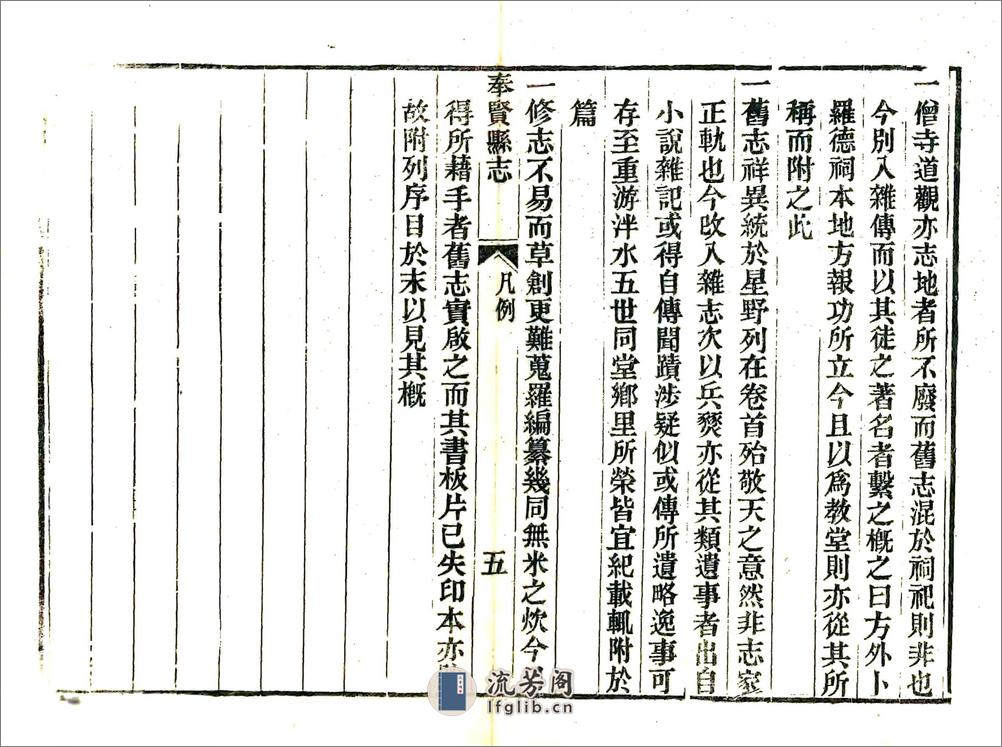 一僧寺道觀亦志地者所不廢而舊志混於祠祀則非也
今別入雜傳而以其徒之著名者繫之概之曰方外卜
羅德祠本地方報功所立今且以爲教堂則亦從其所
稱而附之此
一舊志祥異統於星野列在卷首殆敬天之意然非志家
正軌也今改入雜志次以兵燹亦從其類遺事者出自
小說雜記或得自傳聞蹟涉疑似或傳所遺略逸事可
存至重游泮水五世同堂鄉里所榮皆宜紀載輒附於
篇
一修志不易而草創更難蒐羅編纂幾同無米之炊今
奉賢縣志 凡例 五
得所藉手者舊志實啟之而其書板片已失印本亦
故附列序目於末以見其概
流芳阁
lfglib.cn